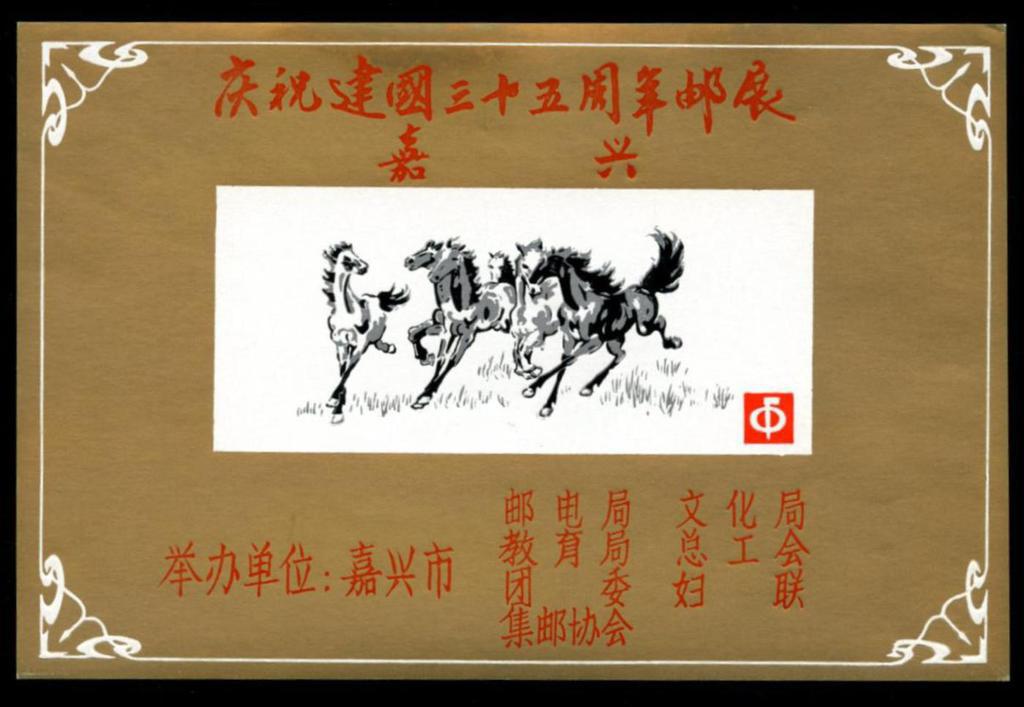 庆祝建國三十五周年邮展
嘉 兴
举办单位:嘉兴市
邮电局 文化局
教育局 总工会
团委 妇联
集邮协会